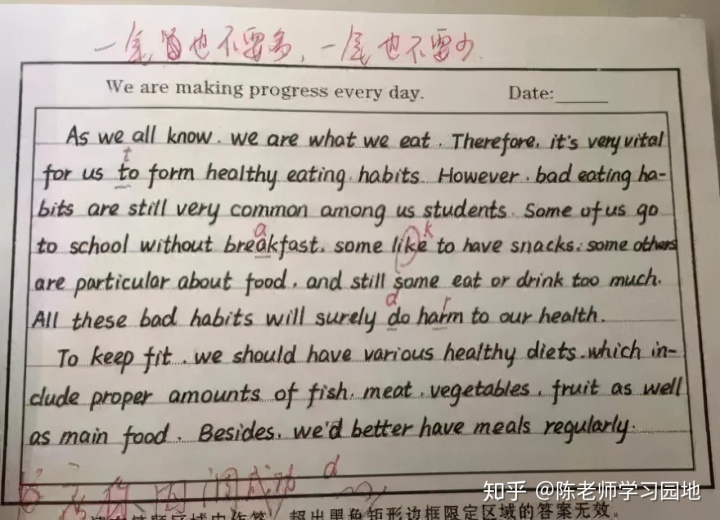 一尾也不要多，一尾也不要少.
We are making progress every day. Date:_____
As we all know, we are what we eat. Therefore, it's very vital
for us to form healthy eating habits. However, bad eating ha-
bits are still very common among us students. Some of us go
to school without breakfast, some like to have snacks, some others
are particular about food, and still some eat or drink too much.
All these bad habits will surely do harm to our health.
To keep fit, we should have various healthy diets, which in-
clude proper amounts of fish, meat, vegetables, fruit as well
as main food. Besides, we'd better have meals regularly.
t
a
k
d
r
d
超出黑色矩形边框限定区域的答案无效。
知乎 @陈老师学习园地